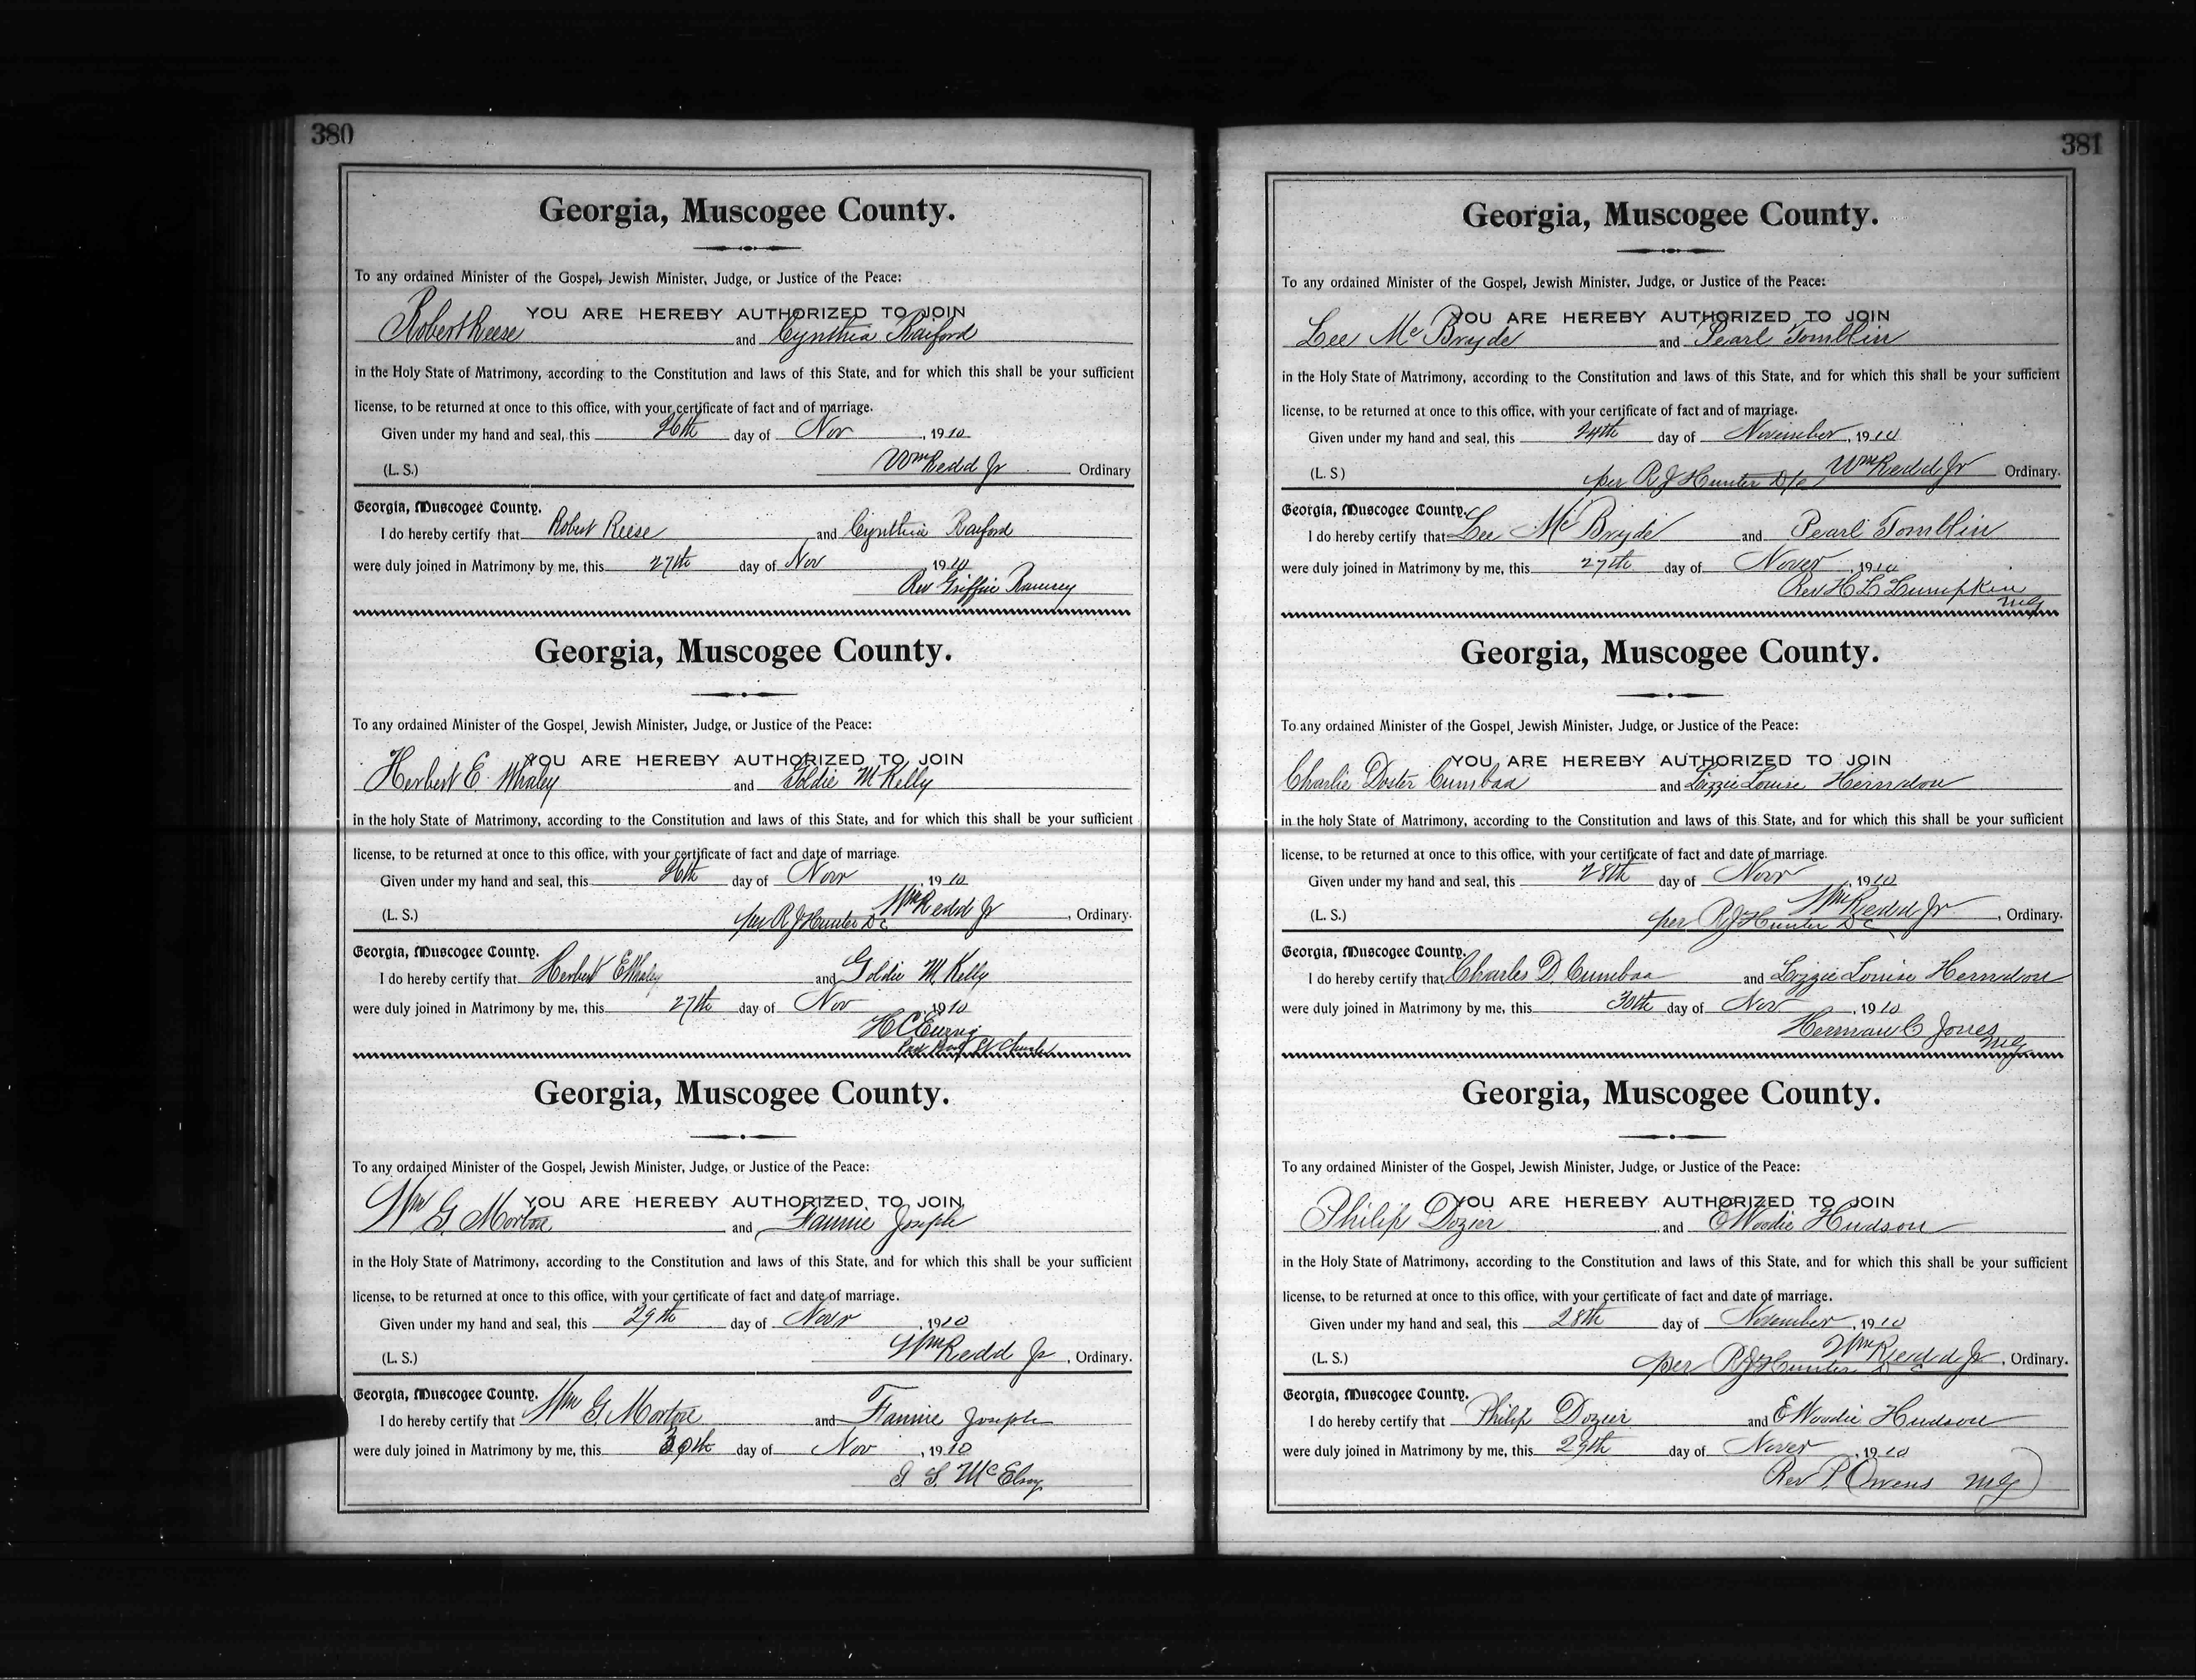 380
Georgia, Muscogee County.
To any ordained Minister of the Gospel, Jewish Minister, Judge, or Justice of the Peace:
YOU ARE HEREBY AUTHORIZED TO JOIN
Robert Reese and Cynthia Raiford
in the Holy State of Matrimony, according to the Constitution and laws of this State, and for which this shall be your sufficient
license, to be returned at once to this office, with your certificate of fact and of marriage.
Given under my hand and seal, this 26th day of Nov, 1910
(L. S.) Wm Redd Jr Ordinary
Georgia, Muscogee County.
I do hereby certify that Robert Reese and Cynthia Raiford
were duly joined in Matrimony by me, this 27th day of Nov 1910
Rev Griffin Ramsey
Georgia, Muscogee County.
To any ordained Minister of the Gospel, Jewish Minister, Judge, or Justice of the Peace:
YOU ARE HEREBY AUTHORIZED TO JOIN
Herbert E. Whaley and Goldie M Kelly
in the holy State of Matrimony, according to the Constitution and laws of this State, and for which this shall be your sufficient
license, to be returned at once to this office, with your certificate of fact and date of marriage.
Given under my hand and seal, this 26th day of Novr, 1910
(L. S.) per R J Hunter DC Wm Redd Jr, Ordinary.
Georgia, Muscogee County.
I do hereby certify that Herbert E Whaley and Goldie M. Kelly
were duly joined in Matrimony by me, this 27th day of Nov, 1910
H C
St
Georgia, Muscogee County.
To any ordained Minister of the Gospel, Jewish Minister, Judge, or Justice of the Peace:
YOU ARE HEREBY AUTHORIZED TO JOIN
Wm G. Morton and Fannie Joseph
in the Holy State of Matrimony, according to the Constitution and laws of this State, and for which this shall be your sufficient
license, to be returned at once to this office, with your certificate of fact and date of marriage.
Given under my hand and seal, this 29th day of Novr, 1910
(L. S.) Wm Redd Jr, Ordinary.
Georgia, Muscogee County.
I do hereby certify that Wm G. Morton and Fannie Joseph
were duly joined in Matrimony by me, this 30th day of Nov, 1910
S. McElroy
381
Georgia, Muscogee County.
To any ordained Minister of the Gospel, Jewish Minister, Judge, or Justice of the Peace:
YOU ARE HEREBY AUTHORIZED TO JOIN
Lee McBryde and Pearl Tomblin
in the Holy State of Matrimony, according to the Constitution and laws of this State, and for which this shall be your sufficient
license, to be returned at once to this office, with your certificate of fact and of marriage.
Given under my hand and seal, this 24th day of November, 1910
(L. S) per R J Hunter D/C, Wm Redd Jr Ordinary.
Georgia, Muscogee County.
I do hereby certify that Lee McBryde and Pearl Tomblin
were duly joined in Matrimony by me, this 27th day of Nover, 1910
Rev H L Lumpkin
MG
Georgia, Muscogee County.
To any ordained Minister of the Gospel, Jewish Minister, Judge, or Justice of the Peace:
YOU ARE HEREBY AUTHORIZED TO JOIN
Charlie Doster Cumbaa and Lizzie Louise Herndon
in the holy State of Matrimony, according to the Constitution and laws of this State, and for which this shall be your sufficient
license, to be returned at once to this office, with your certificate of fact and date of marriage.
Given under my hand and seal, this 28th day of Novr, 1910
(L. S.) per R J Hunter DC Wm Redd Jr, Ordinary.
Georgia, Muscogee County.
I do hereby certify that Charles D. Cumbaa and Lizzie Louise Herndon
were duly joined in Matrimony by me, this 30th day of Nov, 1910
Herman C Jones
MG
Georgia, Muscogee County.
To any ordained Minister of the Gospel, Jewish Minister, Judge, or Justice of the Peace:
YOU ARE HEREBY AUTHORIZED TO JOIN
Philip Dozier and E Woodie Hudson
in the Holy State of Matrimony, according to the Constitution and laws of this State, and for which this shall be your sufficient
license, to be returned at once to this office, with your certificate of fact and date of marriage.
Given under my hand and seal, this 28th day of November, 1910
(L. S.) per R J Hunter D C Wm Redd Jr, Ordinary.
Georgia, Muscogee County.
I do hereby certify that Philip Dozier and E Woodie Hudson
were duly joined in Matrimony by me, this 29th day of Nover, 1910
Rev P. Owens MG